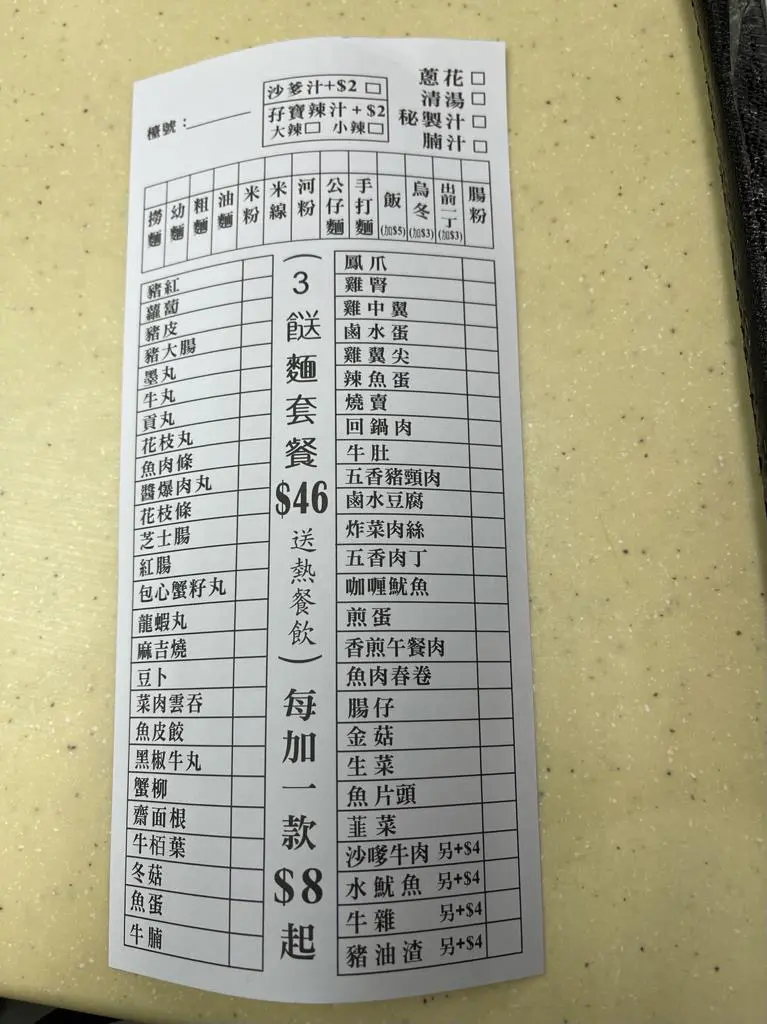 檯號：
沙爹汁+$2 □
孖寶辣汁+$2
大辣□ 小辣□
蔥花 □
清湯 □
秘製汁 □
腩汁 □
撈麵
幼麵
粗麵
油麵
米粉
米線
河粉
公仔麵
手打麵
飯(加$5)
烏冬(加$3)
出前一丁(加$3)
腸粉
豬紅
蘿蔔
豬皮
豬大腸
墨丸
牛丸
貢丸
花枝丸
魚肉條
醬爆肉丸
花枝條
芝士腸
紅腸
包心蟹籽丸
龍蝦丸
麻吉燒
豆卜
菜肉雲吞
魚皮餃
黑椒牛丸
蟹柳
齋面根
牛栢葉
冬菇
魚蛋
牛腩
(3餸麵套餐$46送熱餐飲)每加一款$8起
鳳爪
雞腎
雞中翼
鹵水蛋
雞翼尖
辣魚蛋
燒賣
回鍋肉
牛肚
五香豬頸肉
鹵水豆腐
炸菜肉絲
五香肉丁
咖喱魷魚
煎蛋
香煎午餐肉
魚肉春卷
腸仔
金菇
生菜
魚片頭
韮菜
沙嗲牛肉 另+$4
水魷魚 另+$4
牛雜 另+$4
豬油渣 另+$4